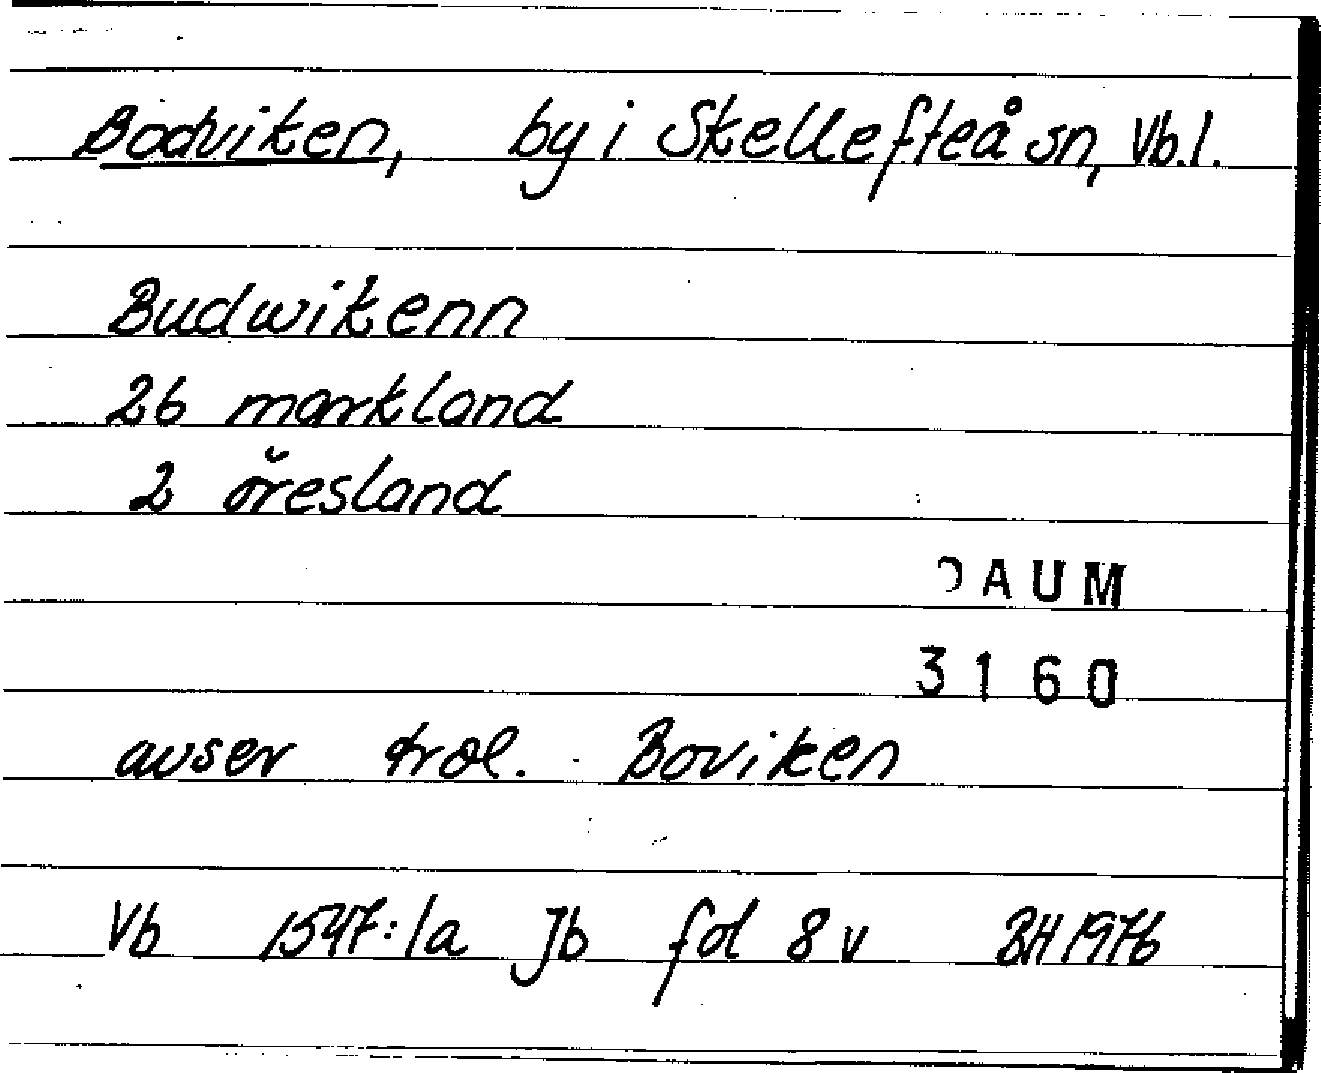 Bodviken, by i Skellefteå sn, Vb.l.
Budwikenn
26 markland
2 öresland
DAUM
3160
avser trol. Boviken
Vb 1547:1a Jb fol 8 v BH 1976